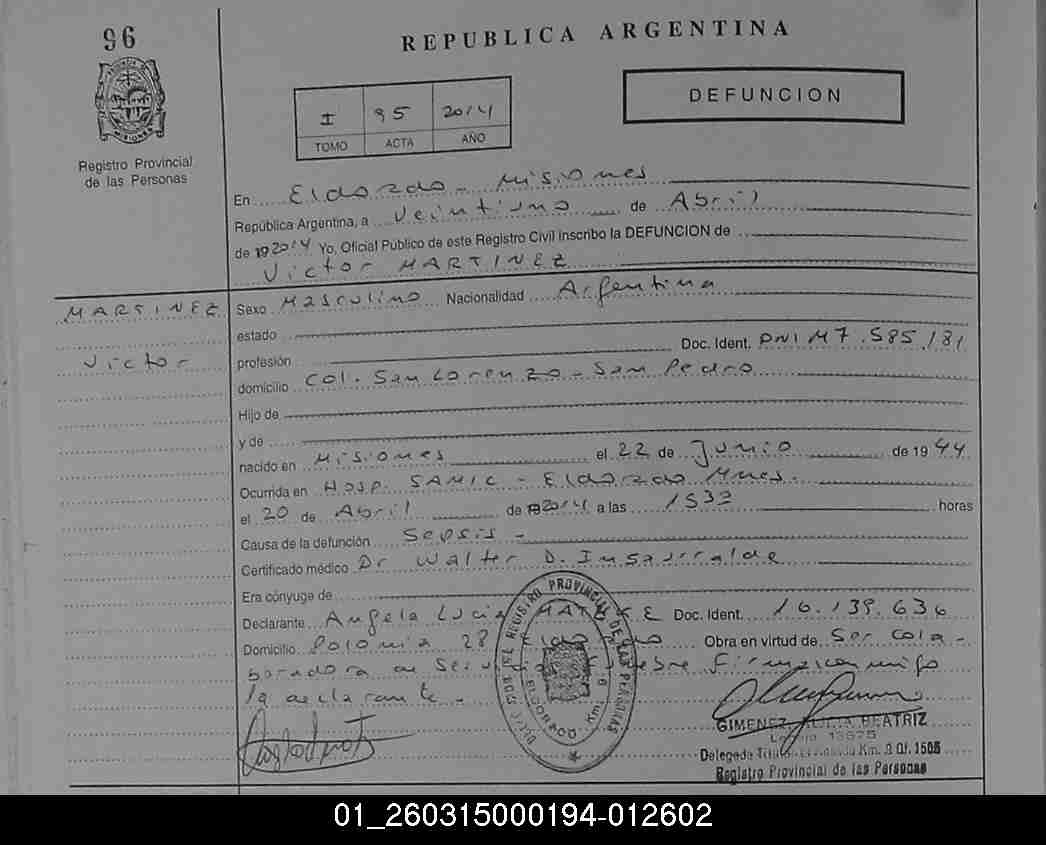 96
REPUBLICA ARGENTINA
I 95 2014
TOMO ACTA AÑO
DEFUNCION
Registro Provincial
de las Personas
En Eldorado - Misiones
República Argentina, a Veintiuno de Abril
de 192014 Yo, Oficial Publico de este Registro Civil inscribo la DEFUNCION de
Victor MARTINEZ
MARTINEZ
Victor
Sexo Masculino Nacionalidad Argentina
estado
profesión Doc. Ident. DNI M7.585.181
domicilio Col. San Lorenzo - San Pedro
Hijo de
y de
nacido en Misiones el 22 de Junio de 1944
Ocurrida en Hosp. SAMIC - Eldorado Mnes.
el 20 de Abril de 192014 a las 1532 horas
Causa de la defunción Sepsis -
Certificado médico Dr Walter D. Insaurralde
Era cónyuge de
Declarante Angela Lucia Doc. Ident. 16.139.636
Domicilio Polonia 28 Eldorado Obra en virtud de Ser Cola-
boradora de Servicio Funebre Firma conmigo
la declarante -
REGISTRO PROVINCIAL DE LAS PERSONAS
ELDORADO Km. 9
GIMENEZ ALICIA BEATRIZ
Delegada Titular Km. 9 Of. 1505
Registro Provincial de las Personas
01_260315000194-012602